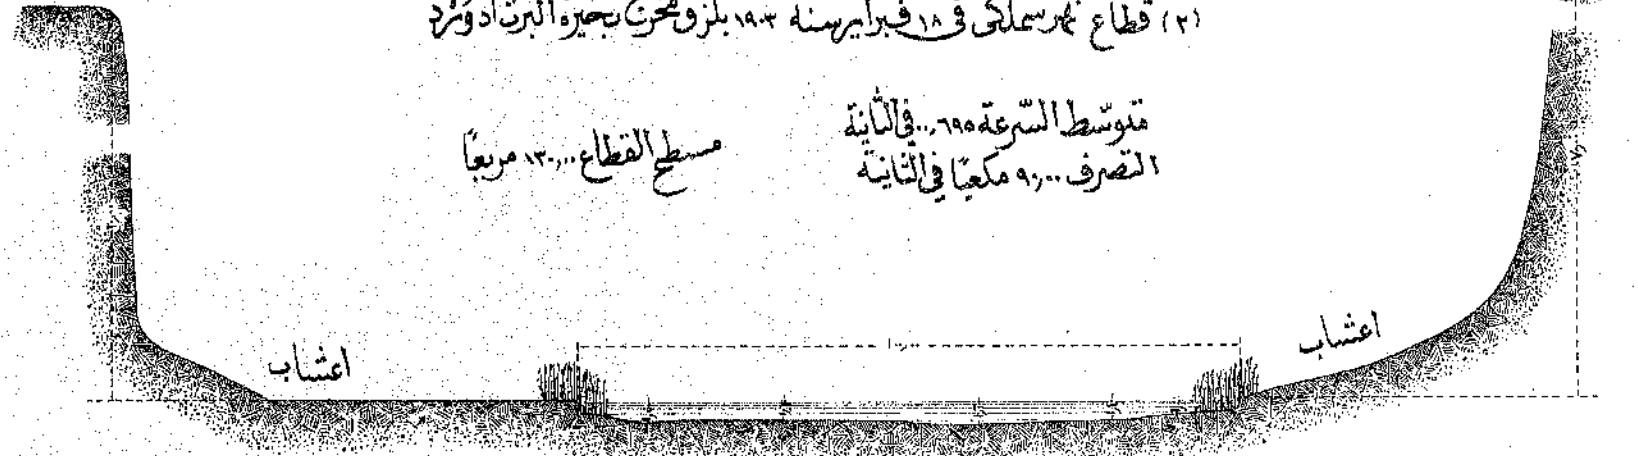 (٢) قطاع نهر سملكى فى ١٨ فبراير سنه ١٩٠٣ بلزوفحرت بحيرة البرت ادورد
متوسّط السّرعة ٠٫٦٩٥ فى الثانية
التصرف ٩٠٫٠٠ مكعبًا فى الثانية
مسطح القطاع ١٣٠٫٠٠ مربعًا
اعشاب
اعشاب